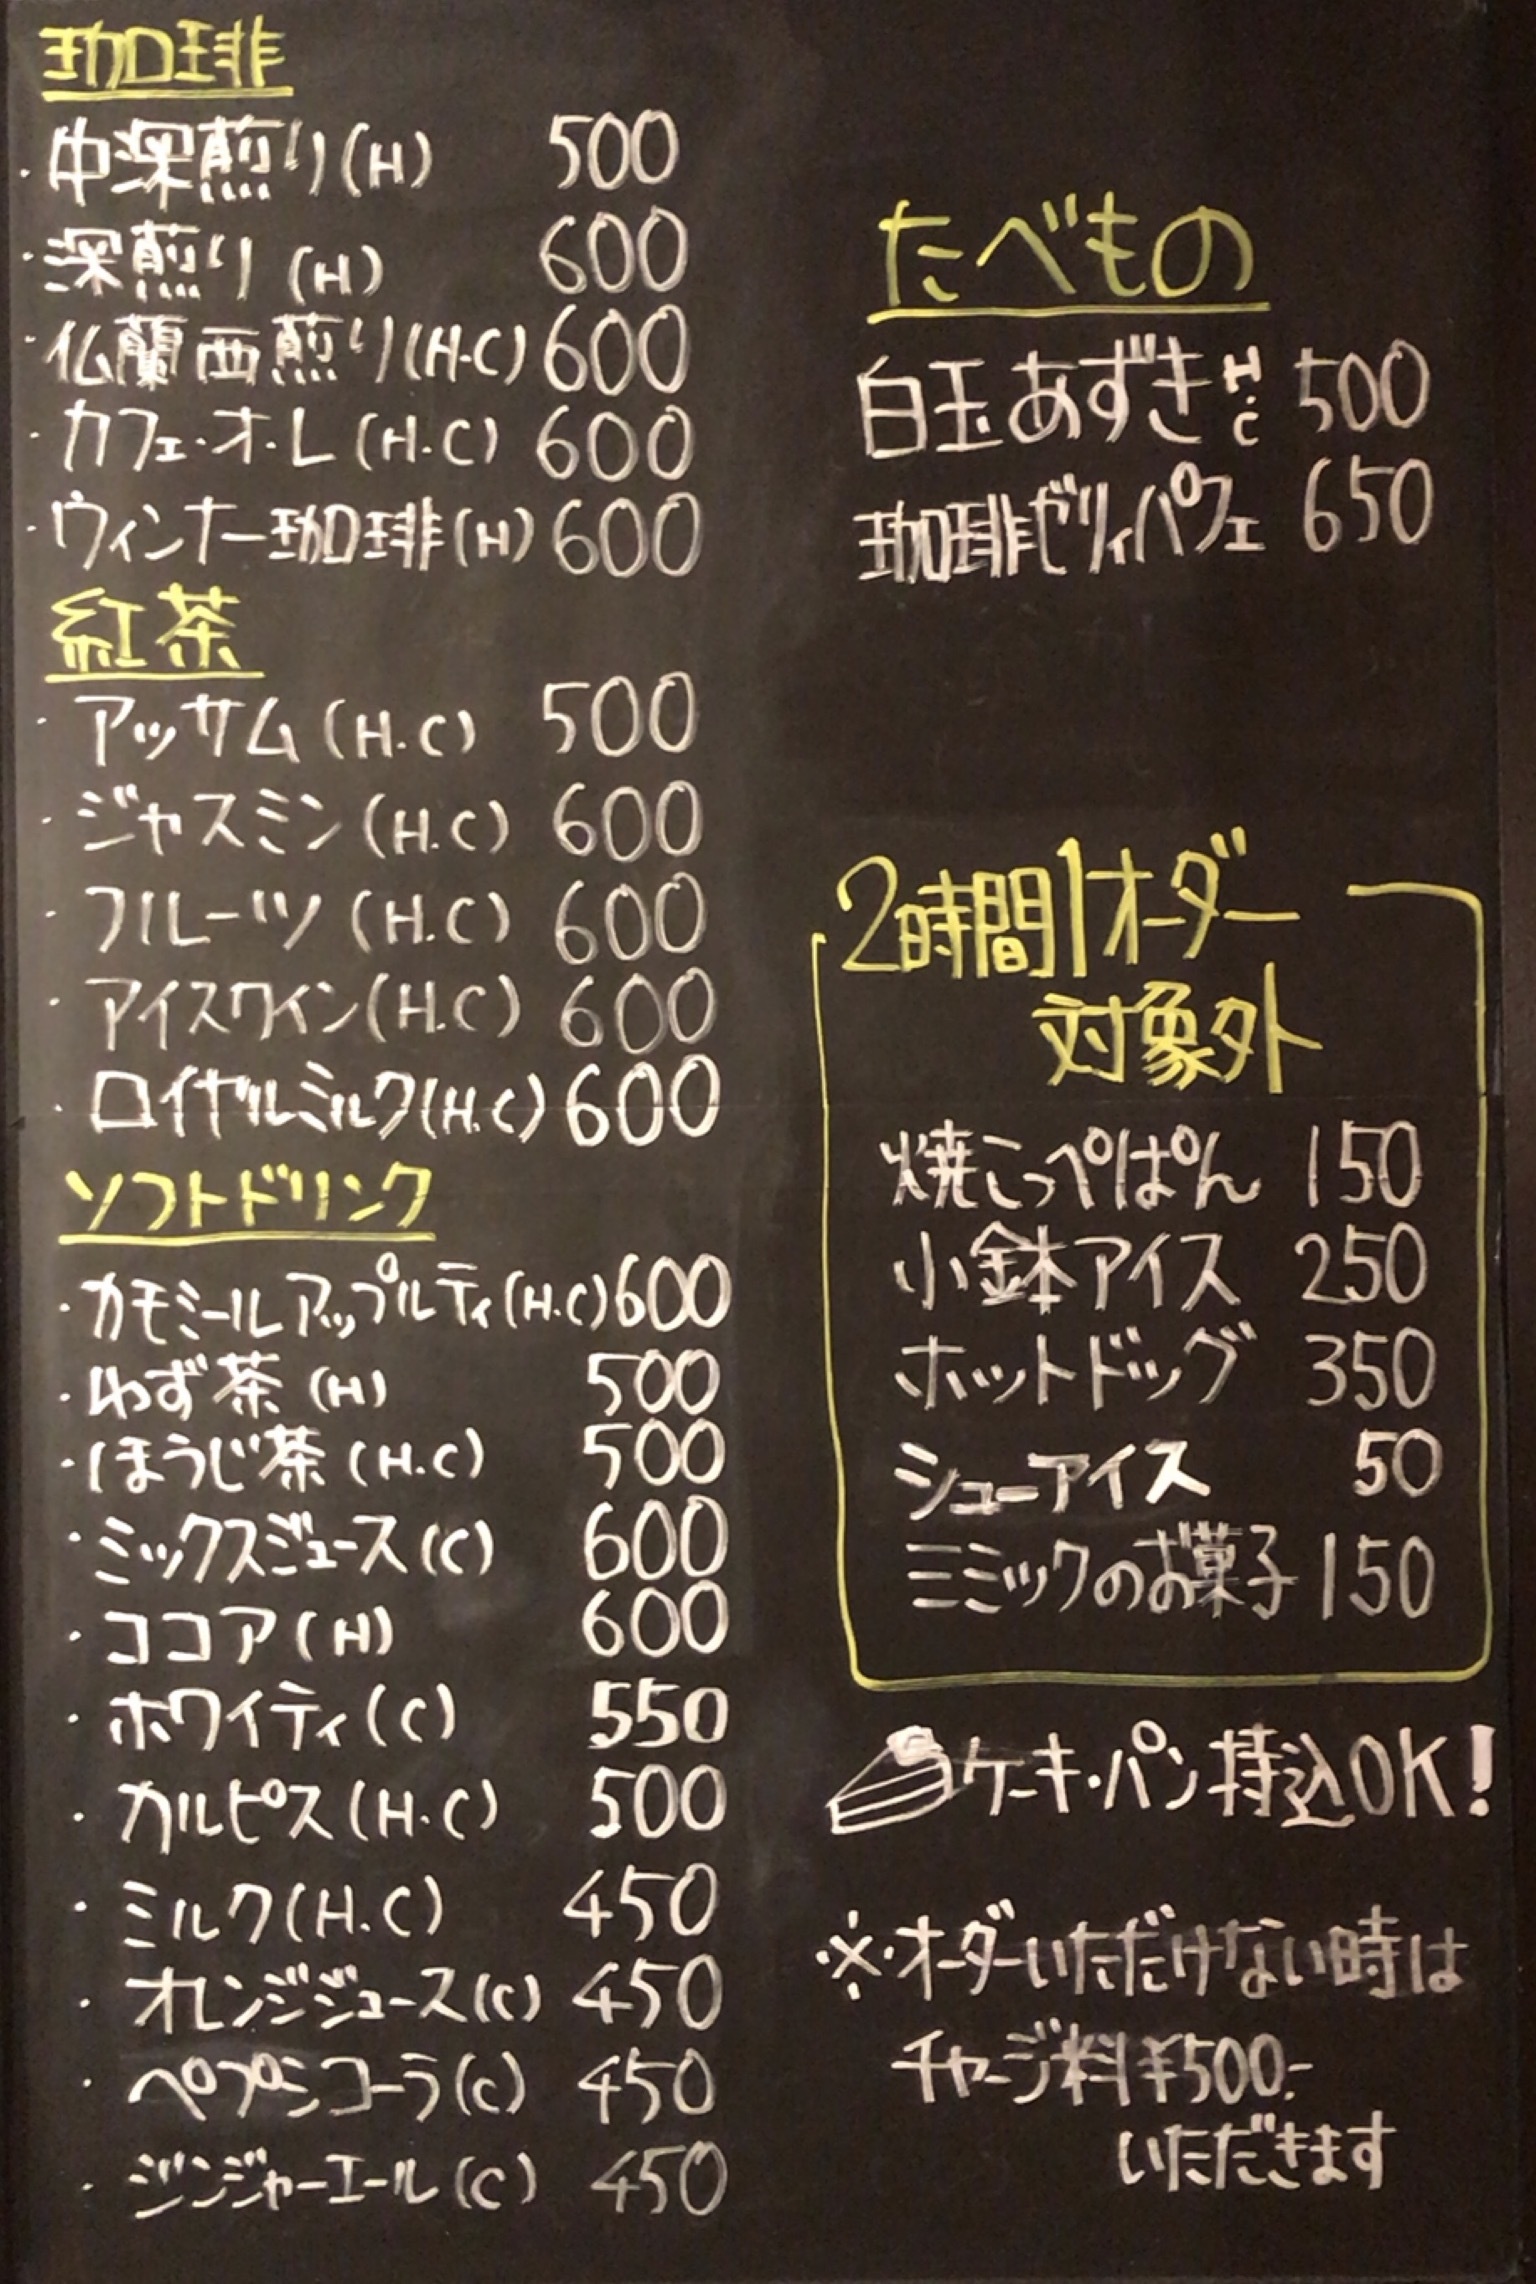 珈琲
・中深煎り(H) 500
・深煎り(H) 600
・仏蘭西煎り(H・C) 600
・カフェ・オ・レ(H.C) 600
・ウィンナー珈琲(H) 600
紅茶
・アッサム(H.C) 500
・ジャスミン(H.C) 600
・フルーツ(H.C) 600
・アイスワイン(H.C) 600
・ロイヤルミルク(H.C) 600
ソフトドリンク
・カモミールアップルティ(H.C) 600
・ゆず茶(H) 500
・ほうじ茶(H.C) 500
・ミックスジュース(C) 600
・ココア(H) 600
・ホワイティ(C) 550
・カルピス(H.C) 500
・ミルク(H.C) 450
・オレンジジュース(C) 450
・ペプシコーラ(C) 450
・ジンジャーエール(C) 450
たべもの
白玉あずきH.C 500
珈琲ゼリィパフェ 650
2時間1オーダー
対象外
焼こっぺぱん 150
小鉢アイス 250
ホットドッグ 350
シューアイス 50
ミミックのお菓子 150
ケーキ・パン持込OK!
※オーダーいただけない時は
チャージ料¥500.-
いただきます